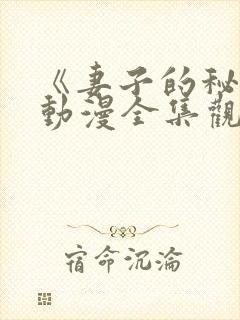 《妻子的秘
動漫全集觀
宿命沉淪